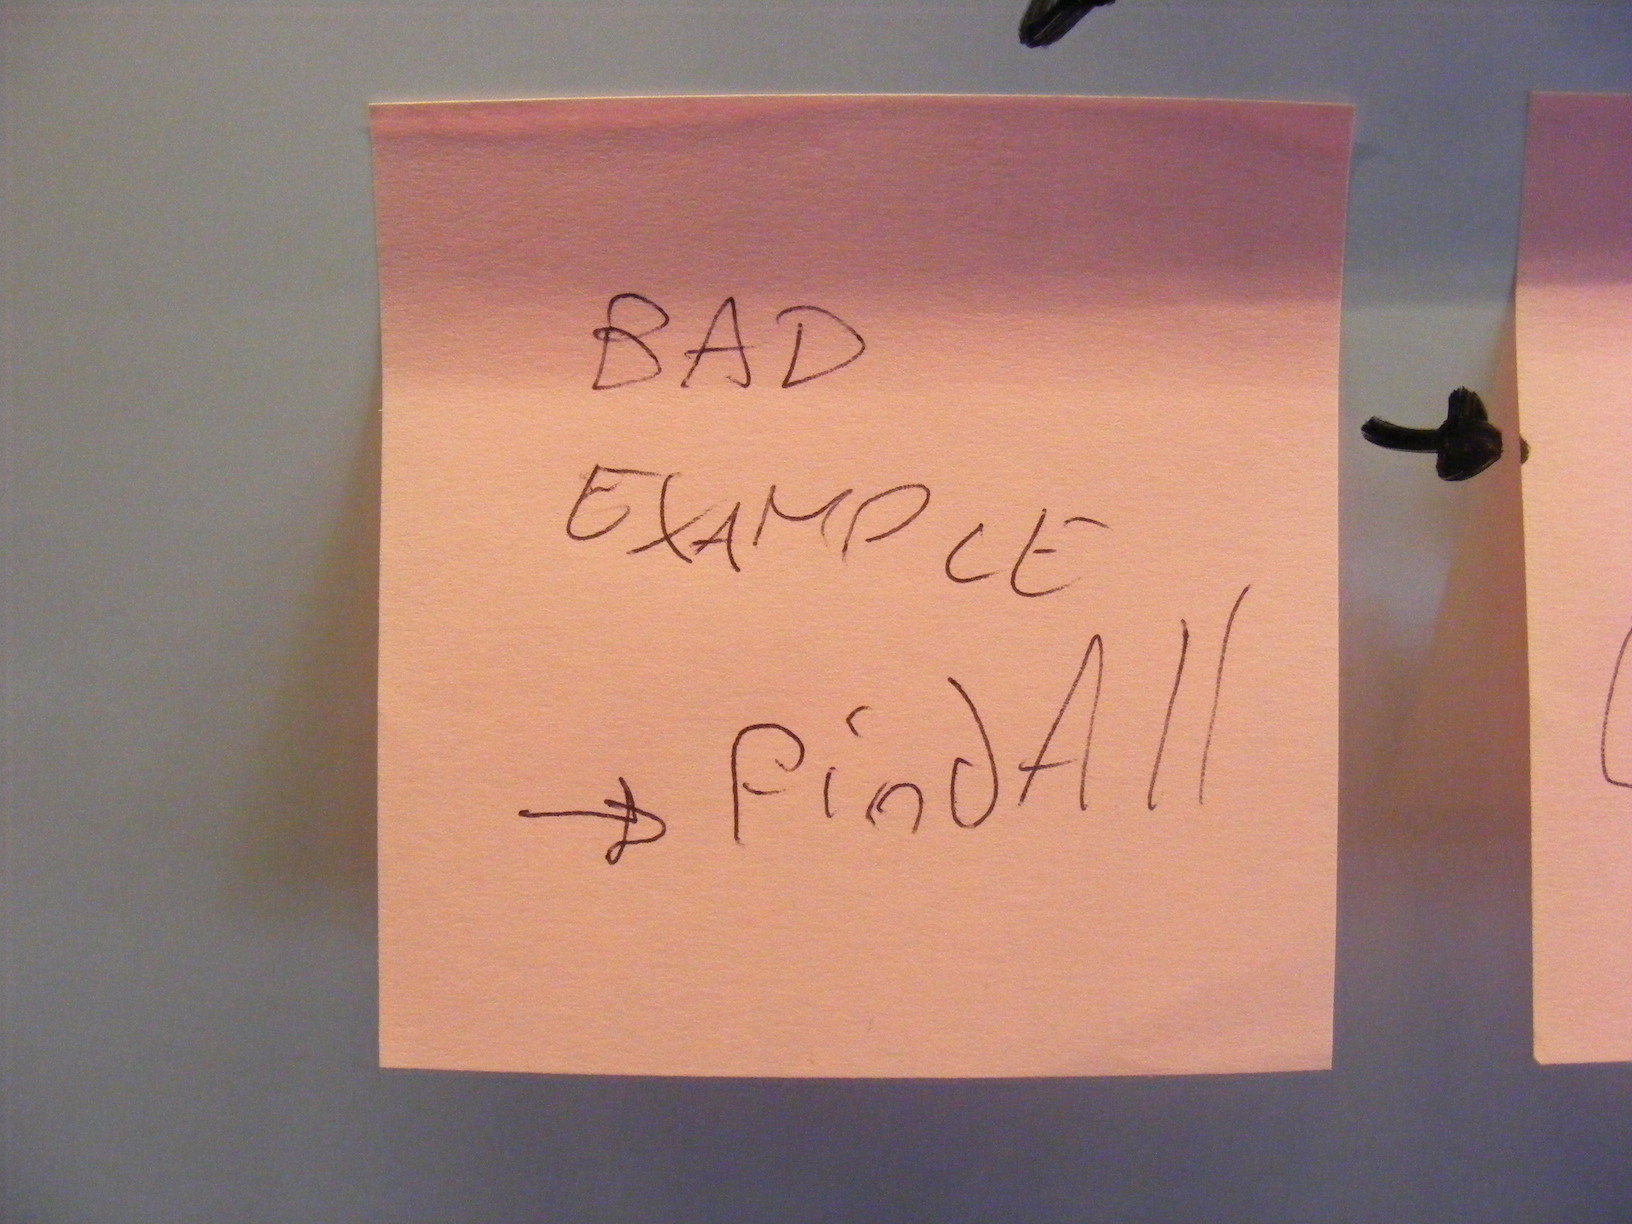 BAD
EXAMPLE
→ findAll